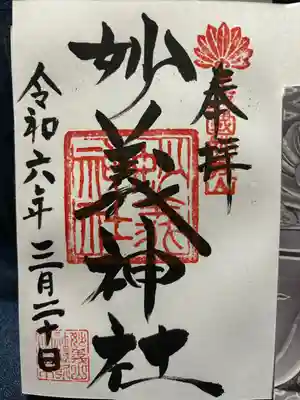 奉拝
妙義神社
令和六年三月二十日